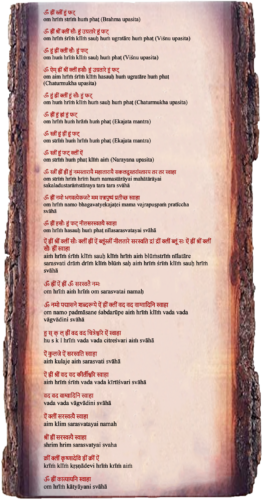 ॐ ह्रीं स्त्रीं हुं फट्
om hrīṁ strīṁ huṁ phaṭ (Brahma upasita)
ॐ ह्रीं श्रीं क्लीं सौः हुं उग्रतारे हुं फट्
om hrīṁ śrīṁ klīṁ sauḥ huṁ ugratāre huṁ phaṭ (Viṣṇu upasita)
ॐ हुं ह्रीं क्लीं सौः हुं फट्
om huṁ hrīṁ klīṁ sauḥ huṁ phaṭ (Viṣṇu upasita)
ॐ ऐं ह्रीं श्रीं क्लीं हसौः हुं उग्रतारे हुं फट्
om aim hrīṁ śrīṁ klīṁ hasauḥ huṁ ugratāre huṁ phaṭ
(Chaturmukha upasita)
ॐ हुं ह्रीं क्लीं हुं फट्
om huṁ hrīṁ klīṁ sauḥ huṁ phaṭ (Chaturmukha upasita)
ॐ ह्रीं हुं ह्रीं हुं फट्
om hrīṁ huṁ hrīṁ huṁ phaṭ (Ekajata mantra)
ॐ स्त्रीं हुं ह्रीं हुं फट्
om strīṁ huṁ hrīṁ huṁ phaṭ (Ekajata mantra)
ॐ स्त्रीं हुं फट् क्लीं ऐं
om strīṁ huṁ phaṭ klīṁ aiṁ (Narayana upasita)
om strīṁ hrīṁ hrīṁ huṁ namastārāyai mahātārāyai
sakaladustarāṁstāraya tara tara svāhā
ॐ ह्रीं नमो भगवत्येकजटे मम वज्रपुष्पं प्रतीच्छ स्वाहा
om hrīṁ namo bhagavatyekajaṭei mama vajrapuṣpaṁ pratīccha
svāhā
ॐ ह्रीं हसौः हुं फट् नीलसरस्वत्यै स्वाहा
om hrīṁ hasauḥ huṁ phaṭ nīlasarasvatyai svāhā
aiṁ hrīṁ śrīṁ klīṁ sauḥ klīṁ hrīṁ aiṁ blūṁstrīṁ nīlatāre
sarasvati drāṁ drīṁ klīṁ blūṁ saḥ aiṁ hrīṁ śrīṁ klīṁ sauḥ hrīṁ
svāhā
ॐ ह्रीं ऐं ह्रीं ॐ सरस्वत्यै नमः
om hrīṁ aiṁ hrīṁ om sarasvatai namaḥ
ॐ नमो पद्मासने शब्दरूपे ऐं ह्रीं क्लीं वद वद वाग्वादिनि स्वाहा
om namo padmāsane śabdarūpe aiṁ hrīṁ klīṁ vada vada
vāgvādini svāhā
हु स् क् ल् ह्रीं वद वद चित्रेश्वरि ऐं स्वाहा
hu s k l hrīṁ vada vada citreśvari aiṁ svāhā
ऐं कुलजे ऐं सरस्वति स्वाहा
aiṁ kulaje aiṁ sarasvati svāhā
ऐं ह्रीं श्रीं वद वद कीर्तीश्वरि स्वाहा
aiṁ hrīṁ śrīṁ vada vada kīrtīśvari svāhā
वद वद वाग्वादिनि स्वाहा
vada vada vāgvādini svāhā
ऐं क्लीं सरस्वत्यै नमः
aim klim sarasvatayai namah
श्रीं ह्रीं सरस्वत्यै स्वाहा
shrim hrim sarasvatyai svaha
क्रीं क्लीं कृष्णदेवि ह्रीं क्रीं ऐं
krīṁ klīṁ kṛṣṇādevi hrīṁ krīṁ aiṁ
ॐ ह्रीं कात्यायनि स्वाहा
om hrīṁ kātyāyani svāhā